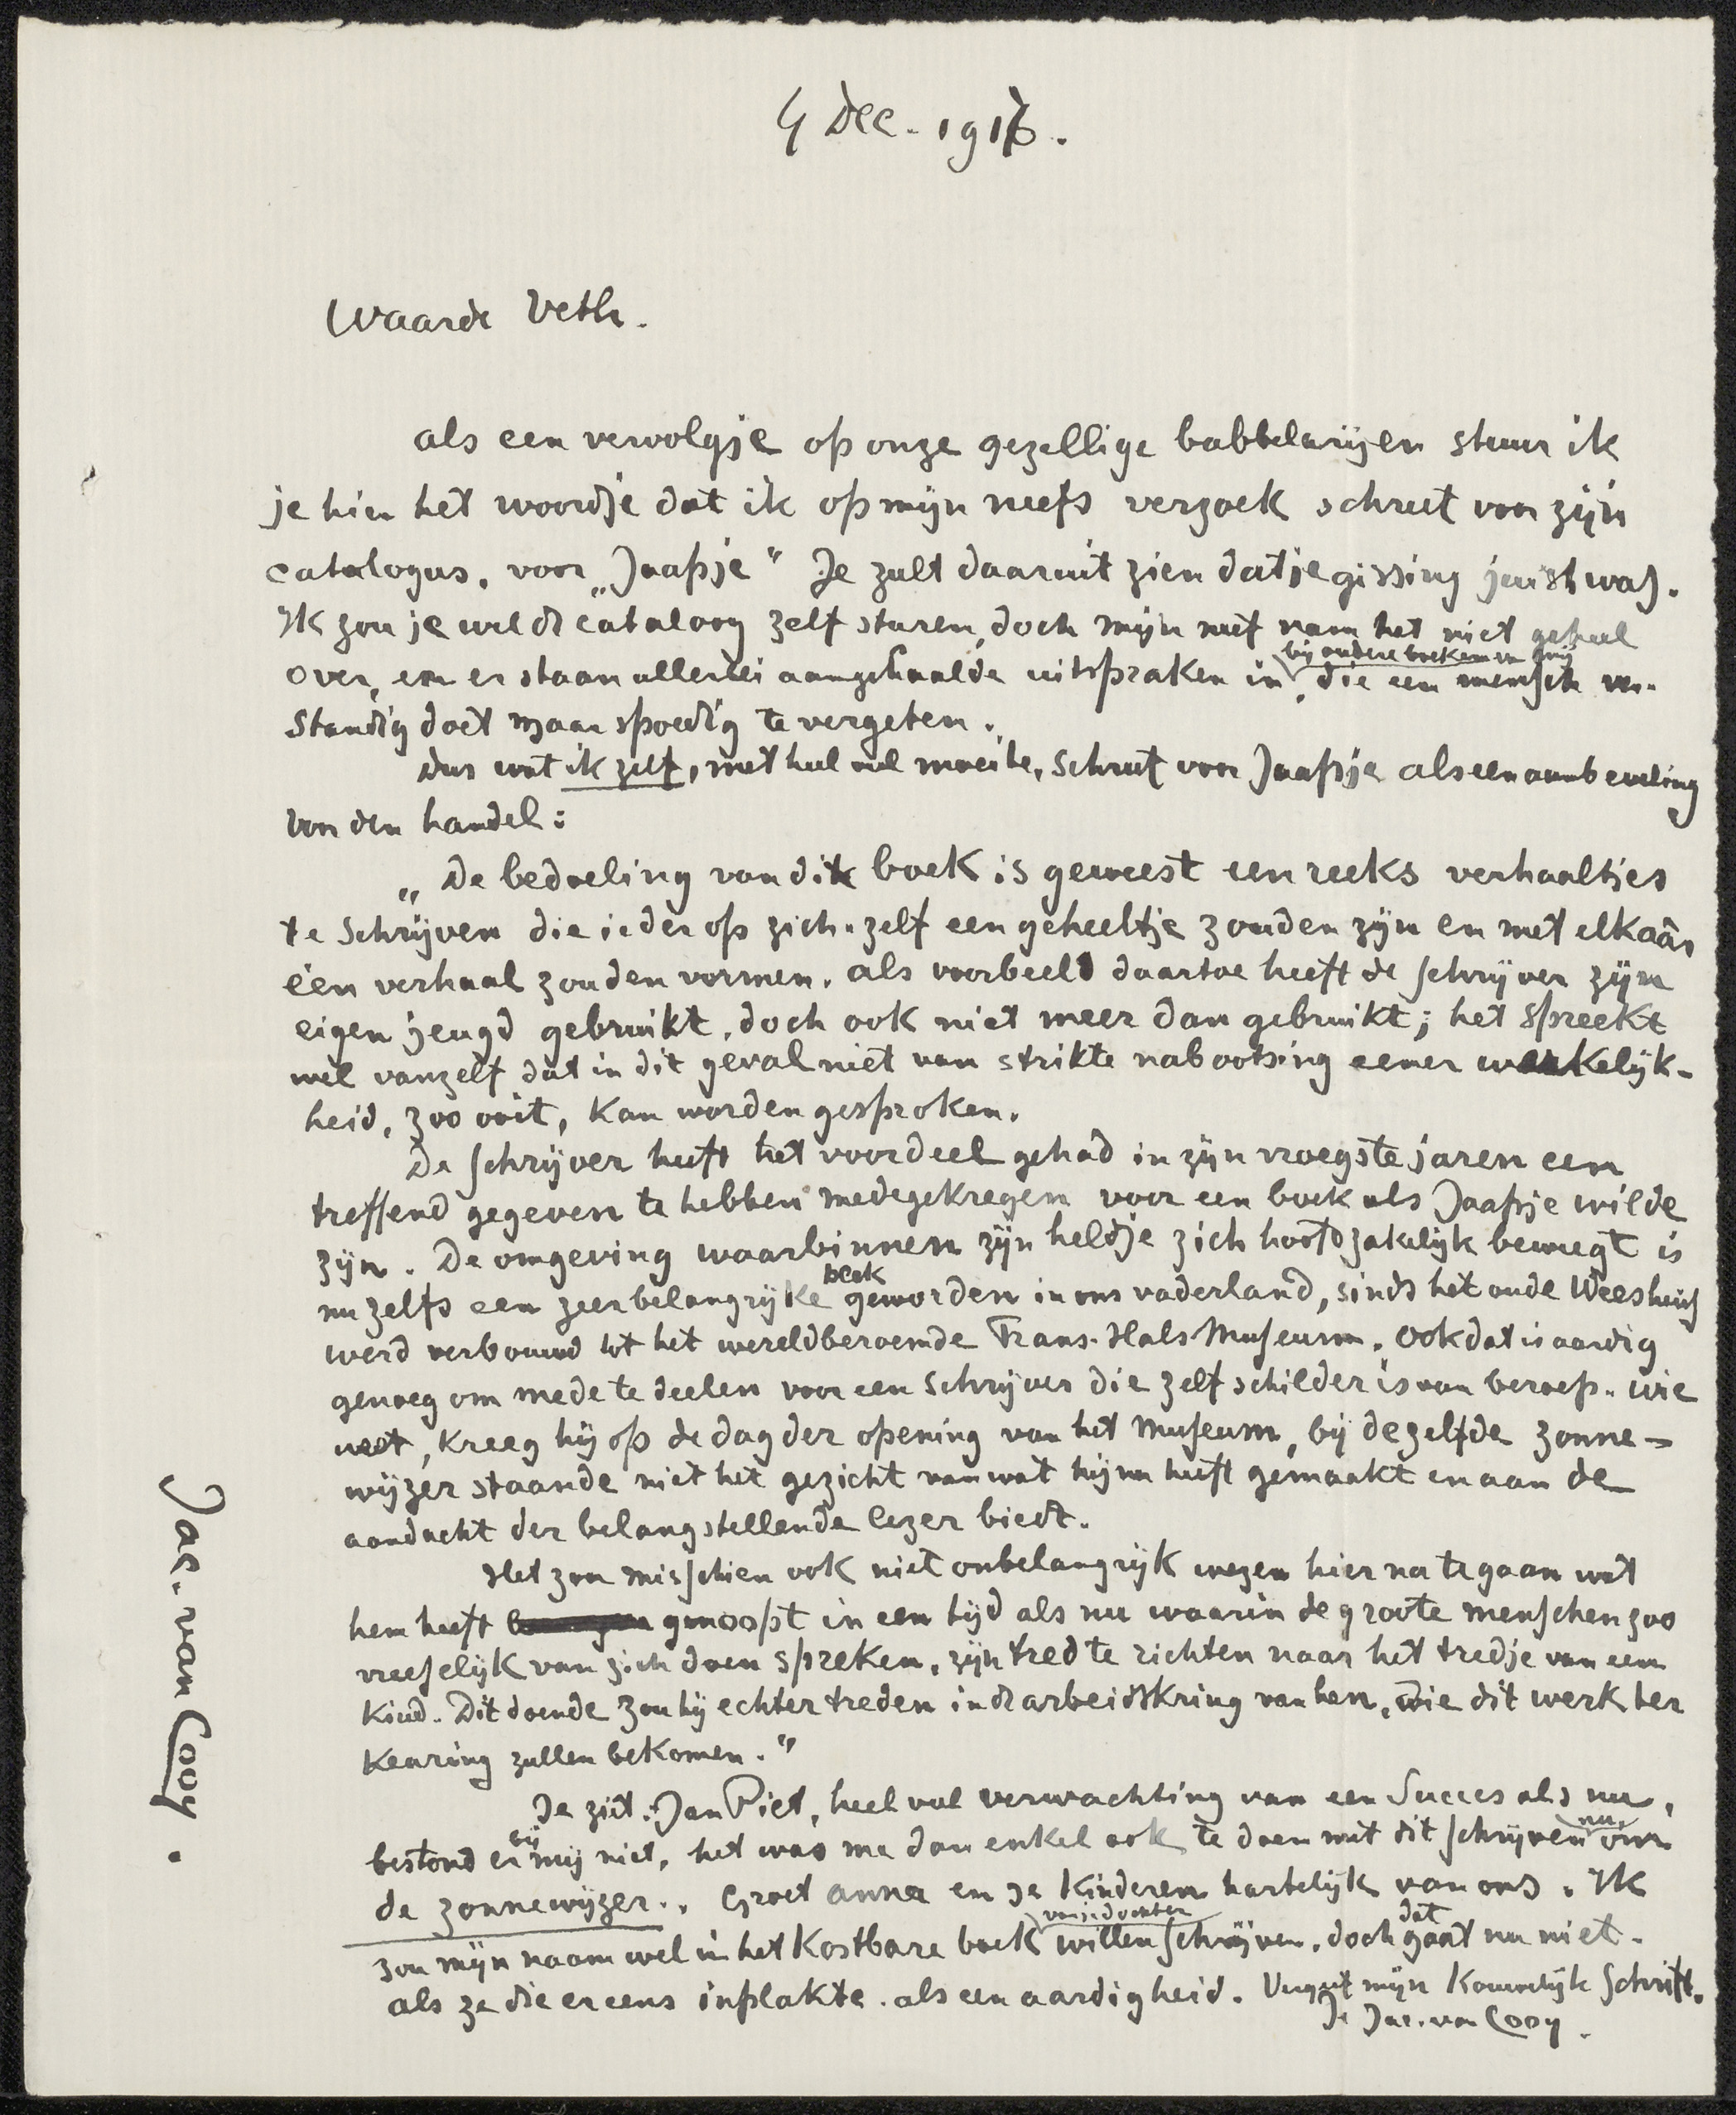 4 Dec. 1917.
Waarde Veth.
als een vervolgje op onze gezellige babbelarijen stuur ik
je hier het woordje dat ik op mijn neefs verzoek schreef voor zijn
catalogus, voor „Jaapje" Je zult daaruit zien dat je gissing juist was.
Ik zou je wel de cataloog zelf sturen, doch mijn neef nam het niet geheel
over, en er staan allerlei aangehaalde uitspraken in bij andere boeken van mij, die een mensch ver-
standig doet maar spoedig te vergeten.
Dus wat ik zelf, met heel veel moeite, schreef voor Jaapje als een aanbeveling
voor den handel:
„De bedoeling van dit boek is geweest een reeks verhaaltjes
te schrijven die ieder op zich-zelf een geheeltje zouden zijn en met elkaâr
één verhaal zouden vormen. als voorbeeld daartoe heeft de schrijver zijn
eigen jeugd gebruikt, doch ook niet meer dan gebruikt; het spreekt
wel vanzelf dat in dit geval niet van strikte nabootsing eener werkelijk-
heid, zoo ooit, kan worden gesproken.
De schrijver heeft het voordeel gehad in zijn vroegste jaren een
treffend gegeven te hebben medegekregen voor een boek als Jaapje wilde
zijn. De omgeving waarbinnen zijn heldje zich hoofdzakelijk beweegt is
nu zelfs een zeer belangrijke plek geworden in ons vaderland, sinds het oude Weeshuis
werd verbouwd tot het wereldberoemde Frans-Hals Museum. Ook dat is aardig
genoeg om mede te deelen voor een schrijver die zelf schilder is van beroep. wie
weet, kreeg hij op de dag der opening van het Museum, bij dezelfde zonne-
wijzer staande niet het gezicht van wat hij nu heeft gemaakt en aan de
aandacht der belangstellende lezer biedt.
Het zou misschien ook niet onbelangrijk wezen hier na te gaan wat
hem heeft genoopt in een tijd als nu waarin de groote menschen zoo
vreeselijk van zich doen spreken, zijn tred te richten naar het tredje van een
kind. Dit doende zou hij echter treden in de arbeidskring van hen, die dit werk ter
keuring zullen bekomen."
Je ziet, Jan Piet, heel veel verwachting van een succes als nu,
bestond er bij mij niet, het was me dan enkel ook te doen met dit schrijven nu, om
de zonnewijzer.. Groet Anna en de kinderen hartelijk van ons. Ik
zou mijn naam wel in het kostbare boek van je dochter willen schrijven, doch dat gaat nu niet.
als ze die er eens inplakte. als een aardigheid. Vergeef mijn kouwelijk schrift.
Je Jac. van Looy.
Jac. van Looy.